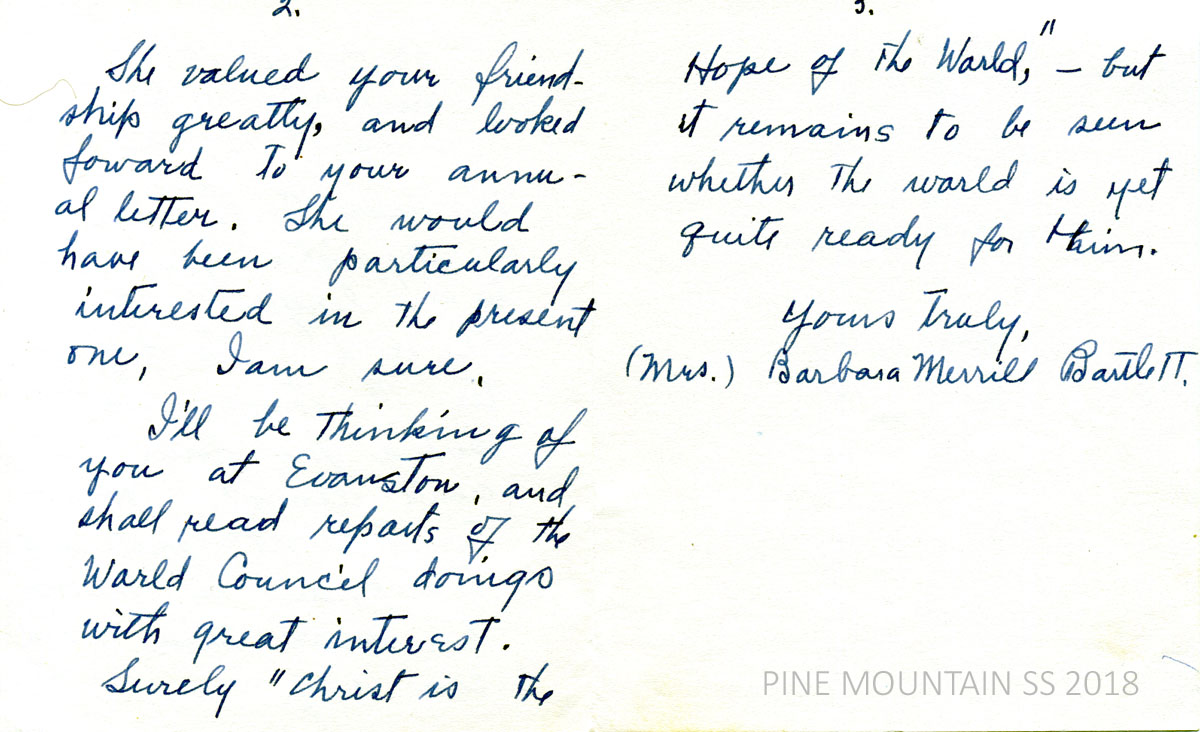 2.
She valued your friend-
ship greatly, and looked
foward to your annu-
al letter. She would
have been particularly
interested in the present
one, I am sure.
I'll be thinking of
you at Evanston, and
shall read reports of the
World Council doings
with great interest.
Surely "Christ is the
3.
Hope of the World," – but
it remains to be seen
whether the world is yet
quite ready for Him.
Yours truly,
(Mrs.) Barbara Merrill Bartlett.
PINE MOUNTAIN SS 2018